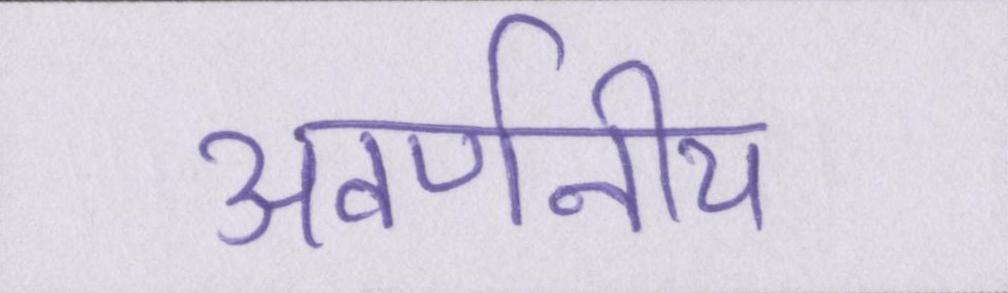 अवर्णनीय